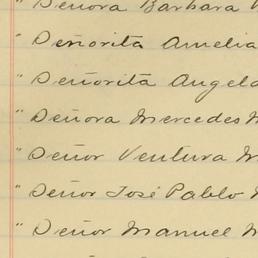 " Señora Barbara
" Señorita Amelia
" Señorita Angela
" Señora Mercedes M
" Señor Ventura M
" Señor José Pablo
" Señor Manuel M